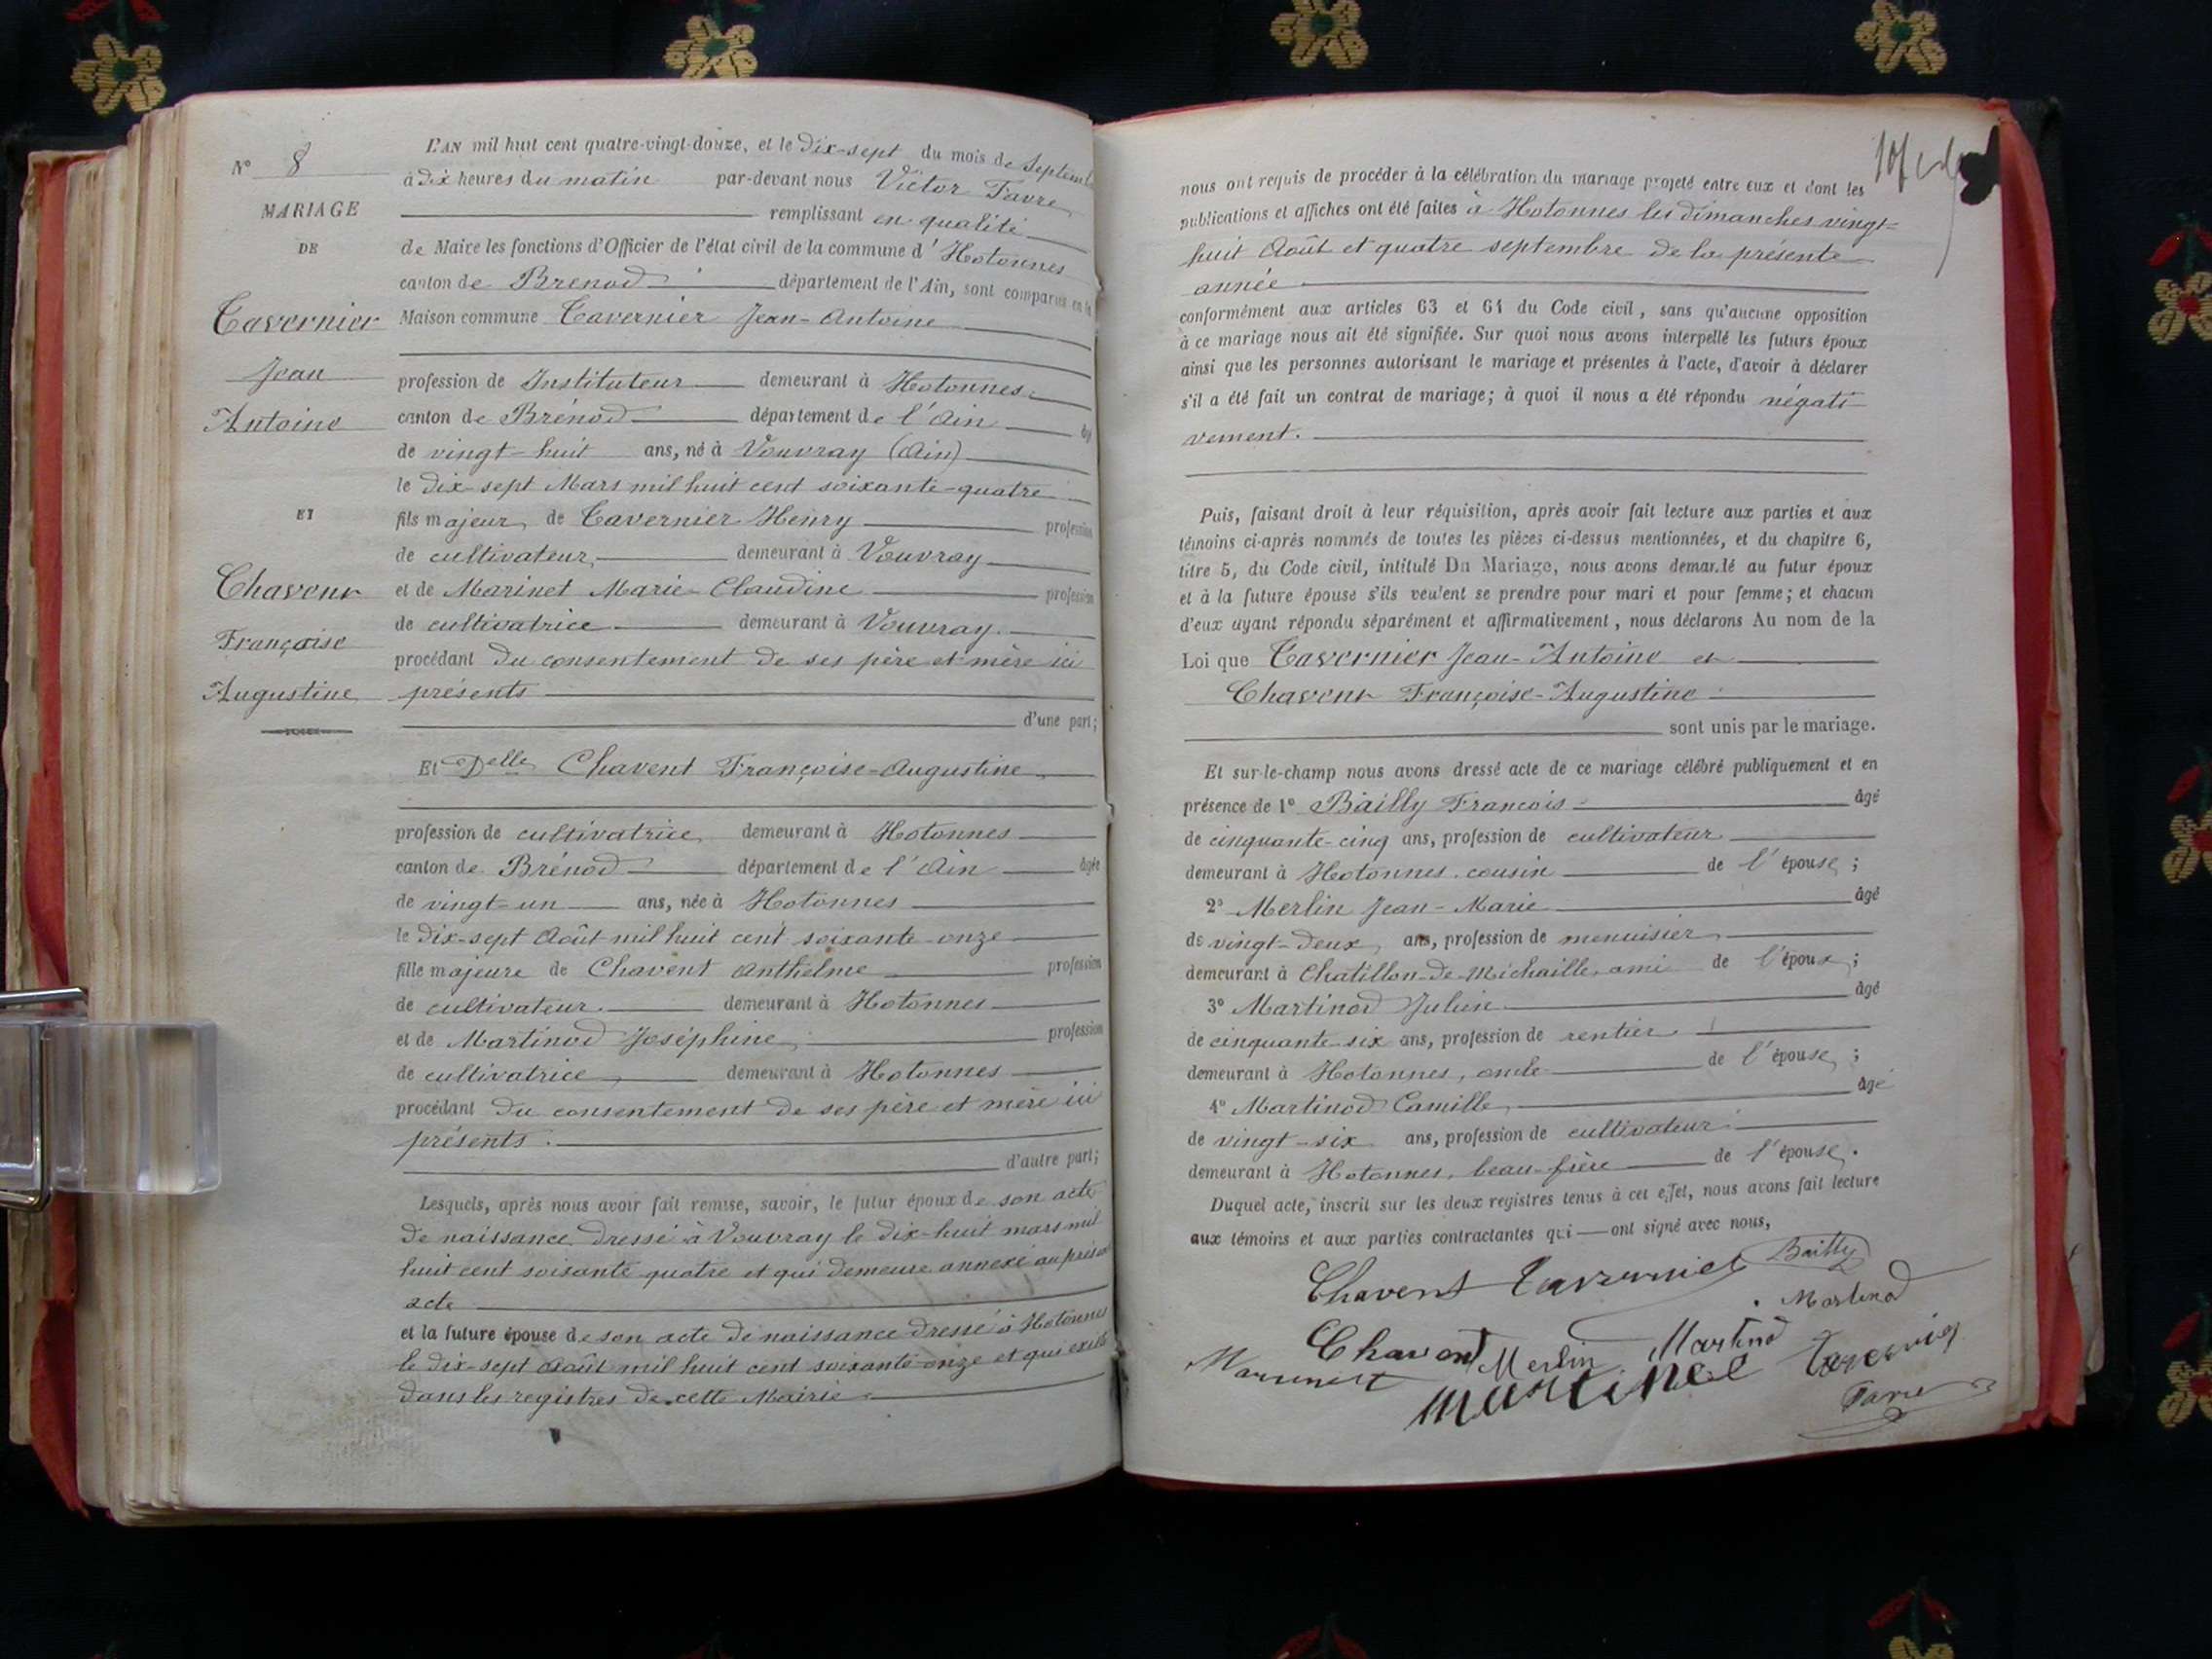 N° 8
MARIAGE
DE
Tavernier
Jean
Antoine
ET
Chavent
Françoise
Augustine
L'AN mil huit cent quatre-vingt-douze, et le dix-sept du mois de Septemb
à dix heures du matin par-devant nous Victor Favre
remplissant en qualité
de Maire les fonctions d'Officier de l'état civil de la commune d'Hotonnes
canton de Brenod département de l'Ain, sont comparus en la
Maison commune Tavernier Jean-Antoine
profession de Instituteur demeurant à Hotonnes
canton de Brénod département de l'Ain âgé
de vingt-huit ans, né à Vouvray (Ain)
le dix-sept Mars mil huit cent soixante-quatre
fils majeur de Tavernier Henry profession
de cultivateur demeurant à Vouvray
et de Marinet Marie-Claudine profession
de cultivatrice demeurant à Vouvray.
procédant du consentement de ses père et mère ici
présents
d'une part;
Et Delle Chavent Françoise-Augustine
profession de cultivatrice demeurant à Hotonnes
canton de Brénod département de l'Ain âgée
de vingt-un ans, née à Hotonnes
le dix-sept Août mil huit cent soixante-onze
fille majeure de Chavent Anthelme profession
de cultivateur demeurant à Hotonnes
et de Martinod Joséphine profession
de cultivatrice demeurant à Hotonnes
procédant du consentement de ses père et mère ici
présents.
d'autre part;
Lesquels, après nous avoir fait remise, savoir, le futur époux de son acte
de naissance dressé à Vouvray le dix-huit mars mil
huit cent soixante quatre et qui demeure annexé au présent
acte
et la future épouse de son acte de naissance dressé à Hotonnes
le dix-sept Août mil huit cent soixante-onze et qui existe
dans les registres de cette Mairie
nous ont requis de procéder à la célébration du mariage projeté entre eux et dont les
publications et affiches ont été faites à Hotonnes les dimanches vingt-
huit Août et quatre septembre de la présente
année
conformément aux articles 63 et 64 du Code civil, sans qu'aucune opposition
à ce mariage nous ait été signifiée. Sur quoi nous avons interpellé les futurs époux
ainsi que les personnes autorisant le mariage et présentes à l'acte, d'avoir à déclarer
s'il a été fait un contrat de mariage; à quoi il nous a été répondu négati-
vement.
Puis, faisant droit à leur réquisition, après avoir fait lecture aux parties et aux
témoins ci-après nommés de toutes les pièces ci-dessus mentionnées, et du chapitre 6,
titre 5, du Code civil, intitulé Du Mariage, nous avons demandé au futur époux
et à la future épouse s'ils veulent se prendre pour mari et pour femme; et chacun
d'eux ayant répondu séparément et affirmativement, nous déclarons Au nom de la
Loi que Tavernier Jean-Antoine et
Chavent Françoise-Augustine
sont unis par le mariage.
Et sur-le-champ nous avons dressé acte de ce mariage célébré publiquement et en
présence de 1° Bailly Francois âgé
de cinquante-cinq ans, profession de cultivateur
demeurant à Hotonnes, cousin de l'épouse;
2° Merlin Jean-Marie âgé
de vingt-deux ans, profession de menuisier
demeurant à Chatillon-de-Michaille, ami de l'époux;
3° Martinod Julien âgé
de cinquante-six ans, profession de rentier
demeurant à Hotonnes, oncle de l'épouse;
4° Martinod Camille âgé
de vingt-six ans, profession de cultivateur
demeurant à Hotonnes, beau-frère de l'épouse.
Duquel acte, inscrit sur les deux registres tenus à cet effet, nous avons fait lecture
aux témoins et aux parties contractantes qui — ont signé avec nous,
Chavent Tavernier Bailly
Martinod
Chavent Merlin Martinod Tavernier
Favre